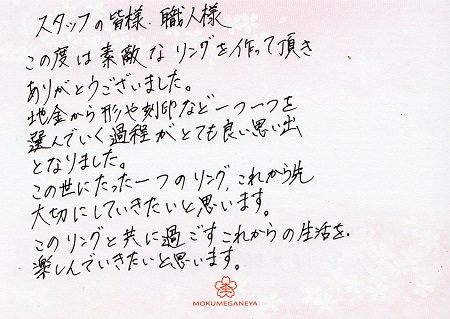 スタッフの皆様、職人様
この度は素敵なリングを作って頂き
ありがとうございました。
地金から形や刻印など一つ一つを
選んでいく過程がとても良い思い出
となりました。
この世にたった一つのリング、これから先
大切にしていきたいと思います。
このリングと共に過ごすこれからの生活を
楽しんでいきたいと思います。
MOKUMEGANEYA